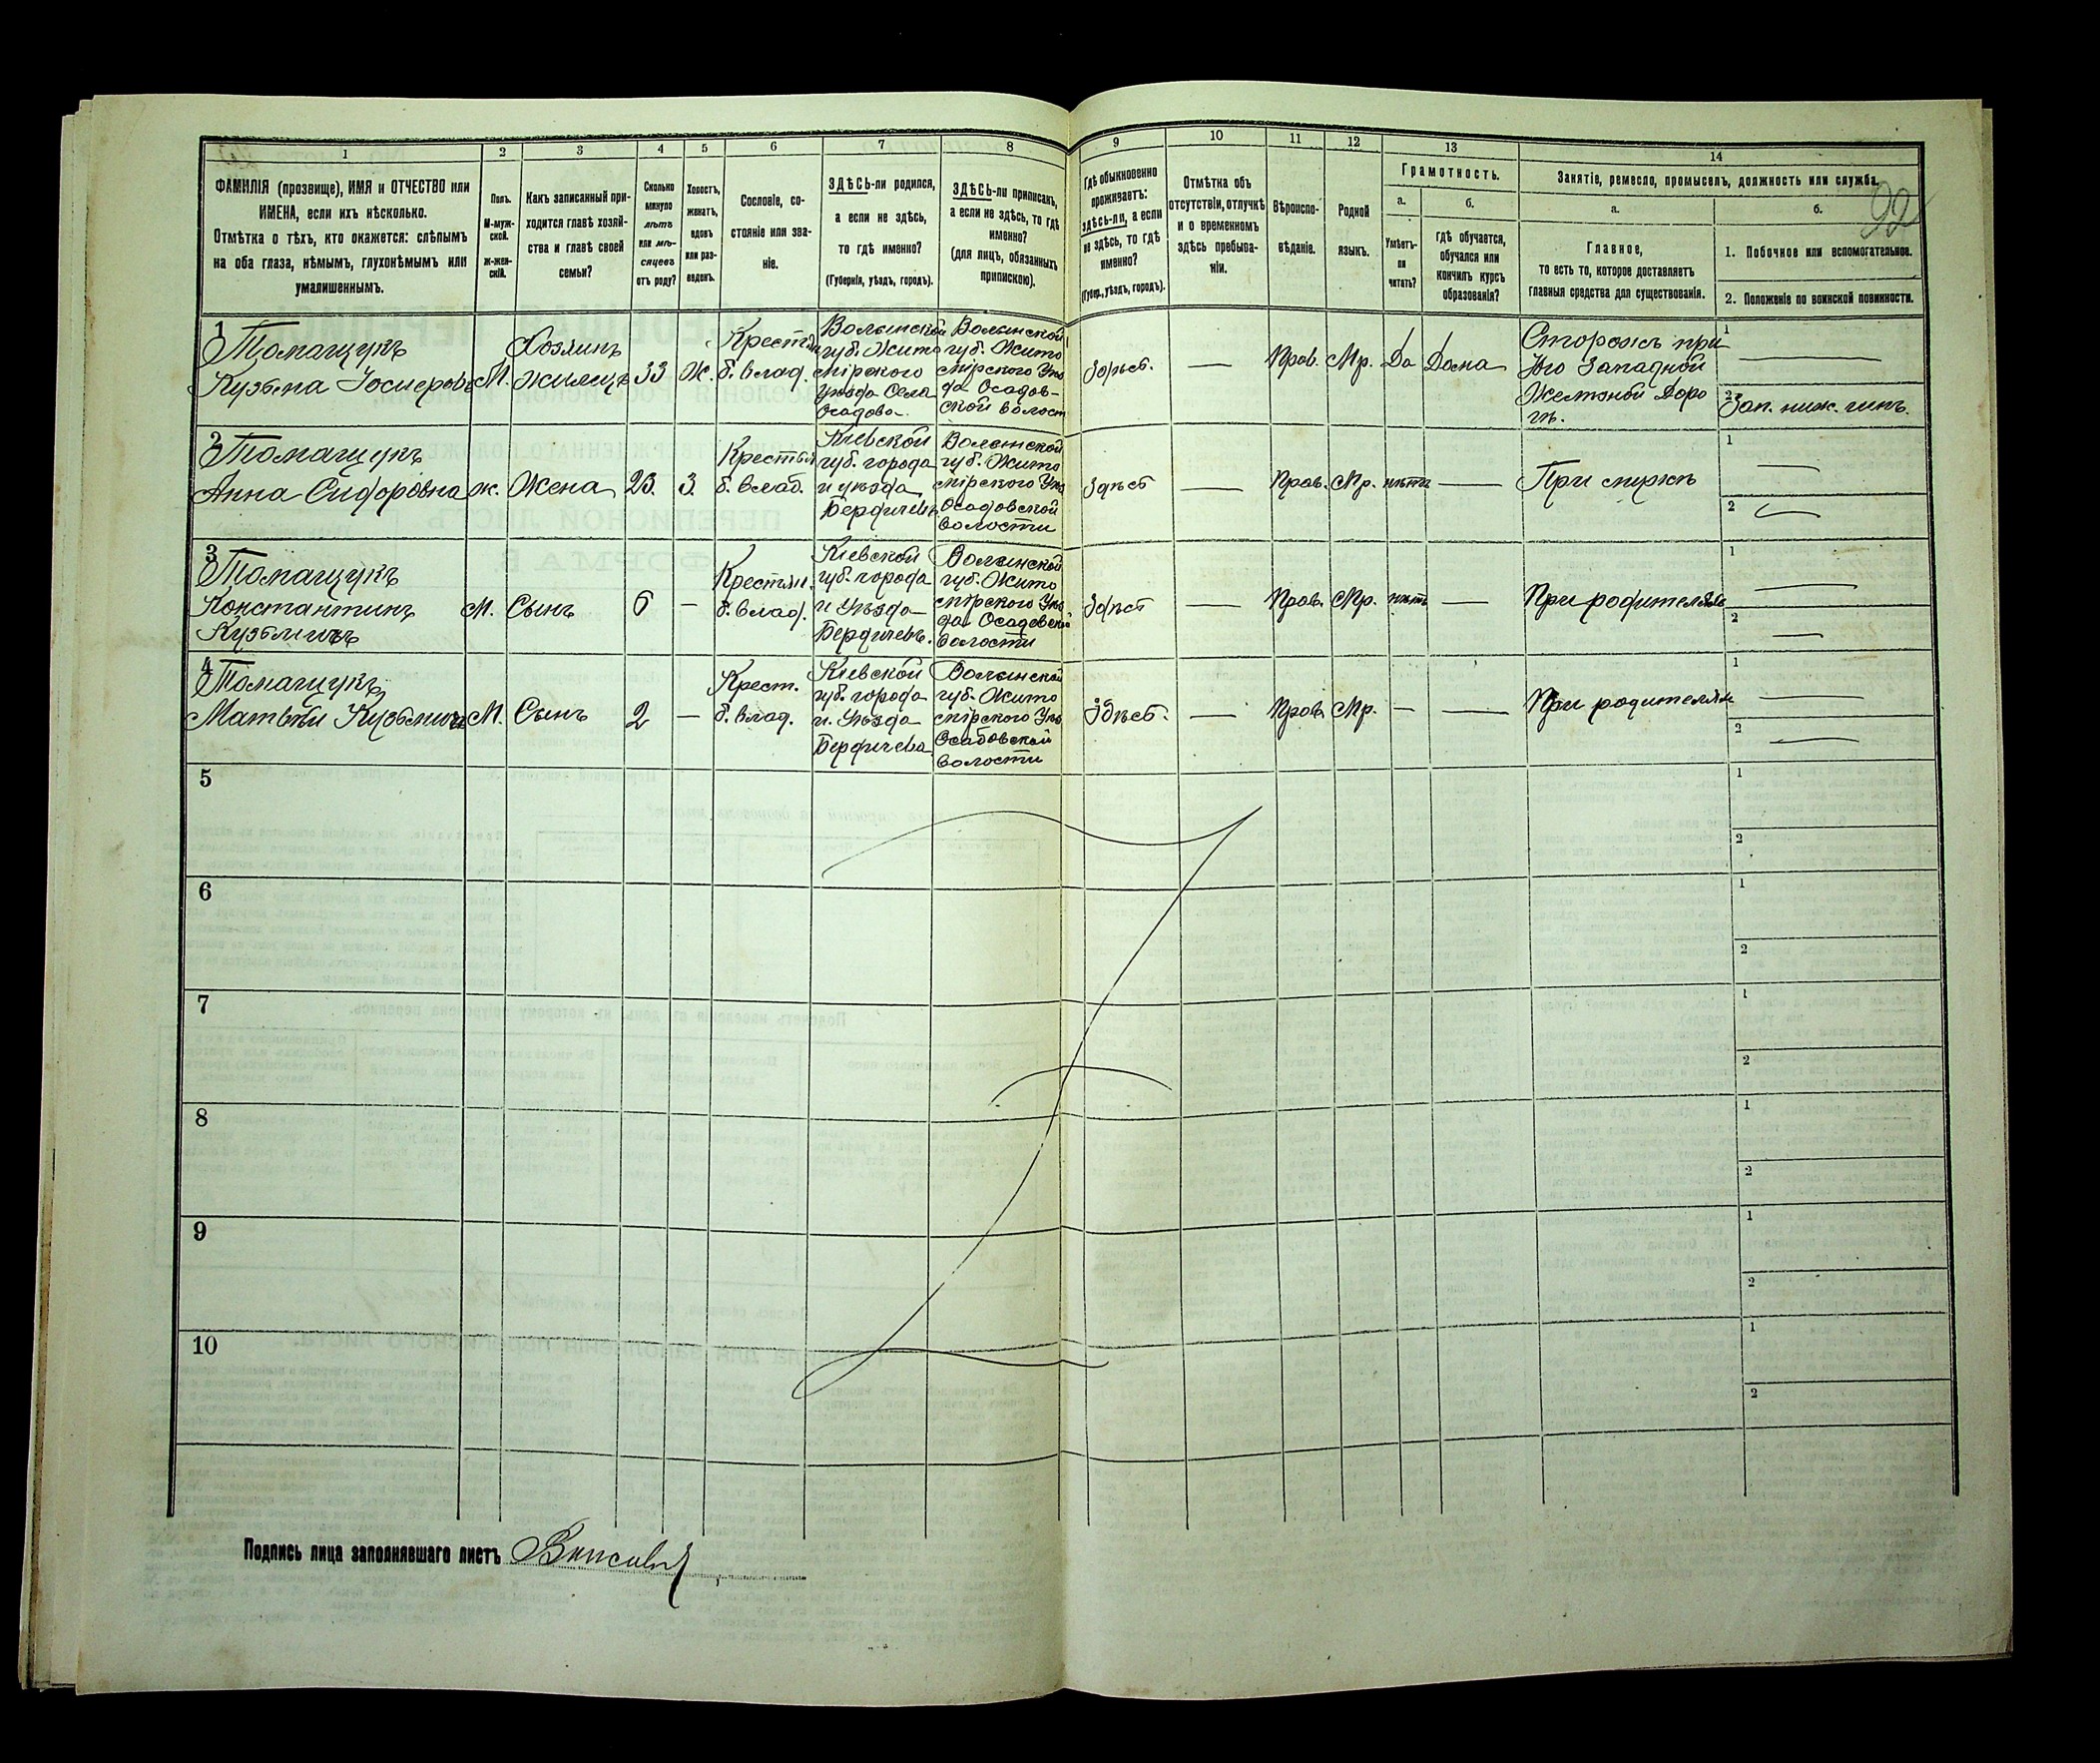 1 2 3 4 5 6 7 8 9 10 11 12 13 14
ФАМИЛІЯ (прозвище), ИМЯ и ОТЧЕСТВО или
ИМЕНА, если ихъ нѣсколько.
Отмѣтка о тѣхъ, кто окажется: слѣпымъ
на оба глаза, нѣмымъ, глухонѣмымъ или
умалишеннымъ.
Полъ.
М-муж-
ской.
Ж-жен-
скій.
Какъ записанный при-
ходится главѣ хозяй-
ства и главѣ своей
семьи?
Сколько
минуло
лѣтъ
или мѣ-
сяцевъ
отъ роду?
Холостъ,
женатъ,
вдовъ
или раз-
веденъ.
Сословіе, со-
стояніе или зва-
ніе.
ЗДѢСЬ-ли родился,
а если не здѣсь,
то гдѣ именно?
(Губернія, уѣздъ, городъ).
ЗДѢСЬ-ли приписанъ,
а если не здѣсь, то гдѣ
именно?
(для лицъ, обязанныхъ
припискою).
Гдѣ обыкновенно
проживаетъ:
здѣсь-ли, а если
не здѣсь, то гдѣ
именно?
(Губер., уѣздъ, городъ).
Отмѣтка объ
отсутствіи, отлучкѣ
и о временномъ
здѣсь пребыва-
ніи.
Вѣроиспо-
вѣданіе.
Родной
языкъ.
Грамотность.
а.
Умѣетъ-
ли
читать?
б.
гдѣ обучается,
обучался или
кончилъ курсъ
образованія?
Занятіе, ремесло, промыселъ, должность или служба.
92
а.
Главное,
то есть то, которое доставляетъ
главныя средства для существованія.
б.
1. Побочное или вспомогательное.
2. Положеніе по воинской повинности.
1
Томащукъ
Кузьма
М.
Хозяинъ
Жилецъ
33
Ж.
Крестьян
б. влад.
Волынской
губ. Жито
мірского
уѣзда Села
Осадова
Волынской
губ. Жито
мірского Уѣз
да Осадов-
ской волост
Здѣсь.
—
Прав.
Мр.
Да
Дома
Сторожъ при
Юго Западной
Желѣзной Доро
гѣ.
1
—
2
Зап. ниж. чинъ.
2
Томащукъ
Анна Сидоровна
ж.
Жена
25.
З.
Крестьян
б. влад.
Кіевской
губ. города
и уѣзда
Бердичевъ
Волынской
губ. Жито
мірского Уѣз
Осадовской
волости
Здѣсь
—
Прав.
Мр.
нѣтъ
—
При мужѣ
1
—
2
—
3
Томащукъ
Константинъ
Кузьмичъ
М.
Сынъ
6
—
Крестьян.
б. влад.
Кіевской
губ. города
и Уѣзда
Бердичевъ.
Волынской
губ. Жито
мірского Уѣз
да Осадовской
волости
Здѣсь
—
Прав.
Мр.
нѣтъ
—
При родителяхъ
1
—
2
—
4
Томащукъ
Матвѣй Кузьмичъ
М.
Сынъ
2
—
Крест.
б. влад.
Кіевской
губ. города
и Уѣзда
Бердичева
Волынской
губ. Жито
мірского Уѣз
Осадовской
волости
Здѣсь.
—
Прав.
Мр.
—
—
При родителяхъ
1
—
2
—
5
1
2
6
1
2
7
1
2
8
1
2
9
1
2
10
1
2
Подпись лица заполнявшаго листъ